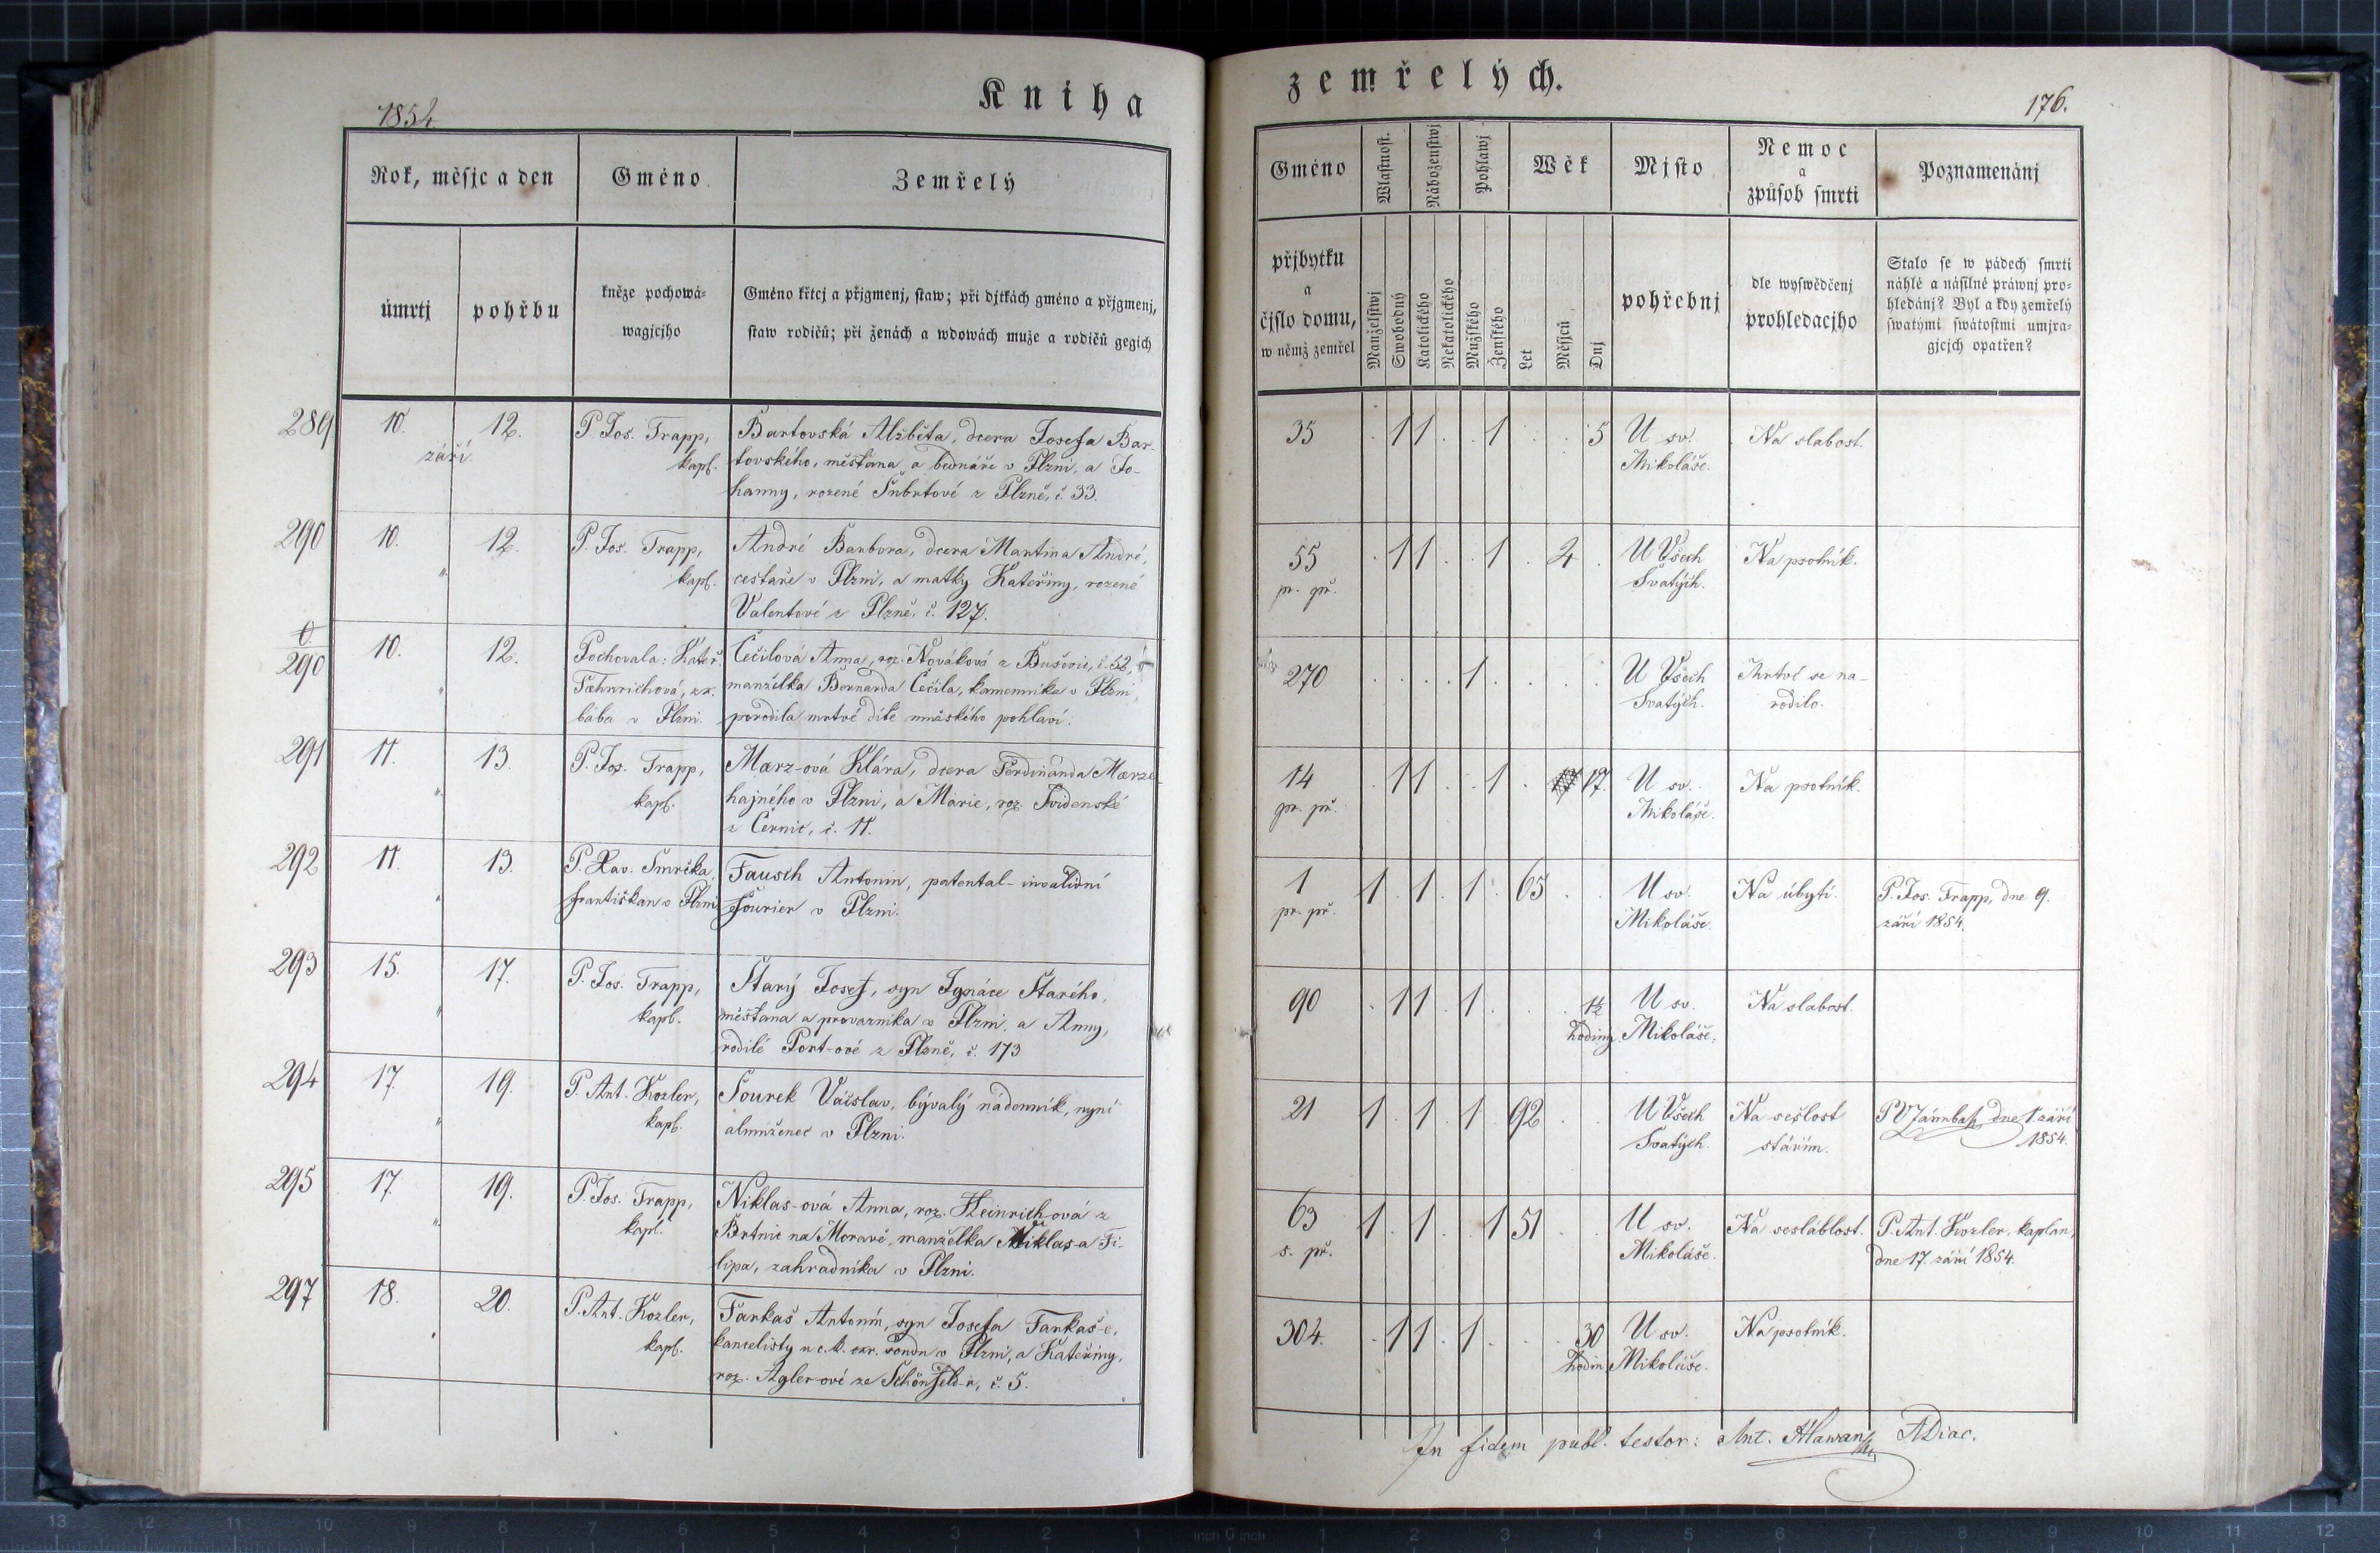 1854.
Kniha
Rok, měsjc a den
Gméno
Zemřelý
úmrtj
pohřbu
kněze pochowá-
wagjcjho
Gméno křtcj a přjgmenj, staw; při djtkách gméno a přjgmenj,
staw rodičů; při ženách a wdowách muže a rodičů gegich
289
10.
12.
září.
P. Jos. Trapp,
kapl.
Bartovská Alžběta, dcera Josefa Bar-
tovského, měšťana a bednáře v Plzni, a Jo-
hanny, rozené Šubrtové z Plzně, č. 33.
290
10.
12.
"
P. Jos. Trapp,
kapl.
André Barbora, dcera Martina André,
cestaře v Plzni, a matky Kateřiny, rozené
Valentové z Plzně, č. 127.
0.
290
10.
12.
"
Pochovala: Kateř.
Fæhnrichová, zk.
bába v Plzni.
Čečilová Anna, roz. Nováková z Bušovic, č. 52,
manželka Bernarda Čečila, kamenníka v Plzni,
porodila mrtvé dítě mužského pohlaví.
291
11.
13.
"
P. Jos. Trapp,
kapl.
Mærz-ová Klára, dcera Ferdinánda Mærze
hajného v Plzni, a Marie, roz. Svidenské
z Černic, č. 11.
292
11.
13.
"
P. Xav. Smrčka,
františkan v Plzni
Fausch Antonin, patental-invalidní
Fourier v Plzni.
293
15.
17.
"
P. Jos. Trapp,
kapl.
Starý Josef, syn Ignáce Starého,
měšťana a provazníka v Plzni, a Anny,
rodilé Port-ové z Plzně, č. 173
294
17.
19.
"
P. Ant. Kozler,
kapl.
Sourek Václav, bývalý nádenník, nyní
almuženec v Plzni.
295
17.
19.
"
P. Jos. Trapp,
kapl.
Niklas-ová Anna, roz. Heinrich-ová z
Brtnic na Moravě, manželka Niklas-a Fi-
lipa, zahradníka v Plzni.
297
18.
20.
"
P. Ant. Kozler,
kapl.
Farkaš Antonín, syn Josefa Farkaš-e,
kancelisty u c. k. okr. soudu v Plzni, a Kateřiny,
roz. Agler-ové ze Schönfeld-u, č. 5.
zemřelých.
176.
Gméno
Wlastnost.
Náboženstwj
Pohlawj
Wěk
Mjsto
Nemoc
a
způsob smrti
Poznamenánj
přjbytku
a
čjslo domu,
w němž zemřel
Manželstwj
Swobodný
Katolického
Nekatolického
Mužského
Ženského
Let
Měsjců
Dnj
pohřebnj
dle wyswědčenj
prohledacjho
Stalo se w pádech smrti
náhlé a násilné práwnj pro-
hledánj? Byl a kdy zemřelý
swatými swátostmi umjra-
gjcjch opatřen?
35 . 1 1 . . 1 . . 5
U sv.
Mikoláše.
Na slabost.
55
pr. př.
. 1 1 . . 1 . 4 .
U Všech
Svatých.
Na psotník.
270 . . . . 1 . . . .
U Všech
Svatých.
Mrtvé se na-
rodilo.
14
pr. př.
. 1 1 . . 1 . 17.
U sv.
Mikoláše.
Na psotník.
1
pr. př.
1 . 1 . 1 . 65 . .
U sv.
Mikoláše.
Na úbytí.
P. Jos. Trapp, dne 9.
září 1854.
90 . 1 1 . 1 . . . 1½
hodiny
U sv.
Mikoláše.
Na slabost.
21 1 . 1 . 1 . 92 . .
U Všech
Svatých.
Na sešlost
stářím.
dne 1. září
1854.
63
s. př.
1 . 1 . . 1 51 . .
U sv.
Mikoláše.
Na sesláblost.
P. Ant. Kozler, kaplan,
dne 17. září 1854.
304. . 1 1 . 1 . . . 30
hodin
U sv.
Mikoláše.
Na psotník.
In fidem publ. testor: Ant. Hlawan ADiac.